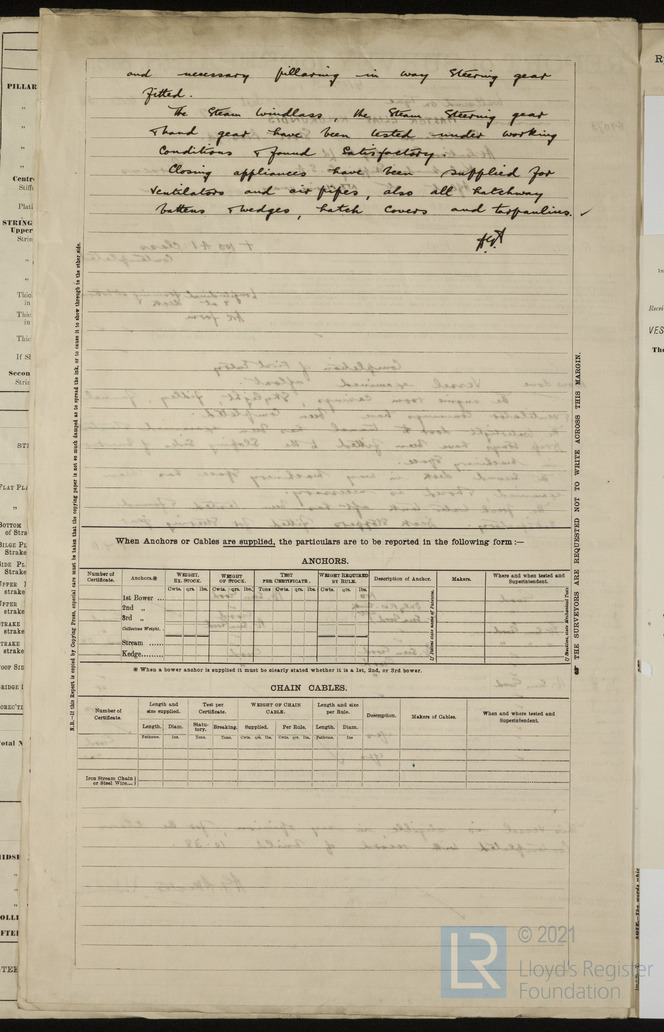 and necessary pillaring in way Steering gear
fitted.
The Steam Windlass, the Steam Steering gear
& hand gear have been tested under working
Conditions & found Satisfactory.
Closing appliances have been supplied for
Ventilators and air pipes, also all hatchway
battens & wedges, hatch covers and tarpaulins.
N.B.—If this Report is copied by Copying Press, especial care must be taken that the copying paper is not so much damped as to spread the ink, or to cause it to show through to the other side.
THE SURVEYORS ARE REQUESTED NOT TO WRITE ACROSS THIS MARGIN.
When Anchors or Cables are supplied, the particulars are to be reported in the following form :—
ANCHORS.
Number of Certificate. Anchors.* WEIGHT. EX. STOCK. WEIGHT OF STOCK. TEST PER CERTIFICATE. WEIGHT REQUIRED BY RULE. Description of Anchor. Makers. Where and when tested and Superintendent.
Cwts. qrs. lbs. Cwts. qrs. lbs. Tons Cwts. qrs. lbs. Cwts. qrs. lbs.
1st Bower ...
2nd „
3rd „
Collective Weight.
Stream ......
Kedge........
* When a bower anchor is supplied it must be clearly stated whether it is a 1st, 2nd, or 3rd bower.
CHAIN CABLES.
Number of Certificate. Length and size supplied. Test per Certificate. WEIGHT OF CHAIN CABLE. Length and size per Rule. Description. Makers of Cables. When and where tested and Superintendent.
Length. Diam. Statutory. Breaking. Supplied. Per Rule. Length. Diam.
Fathoms. Ins. Tons. Tons. Cwts. qrs. lbs. Cwts. qrs. lbs. Fathoms. Ins
Iron Stream Chain or Steel Wire
LR
© 2021
Lloyd's Register
Foundation